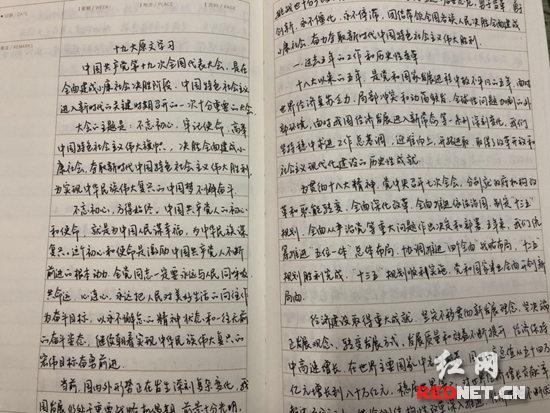 日期 / DATE
星期 / WEEK
地点 / PLACE
十九大原文学习
中国共产党第十九次全国代表大会,是在
全面建成小康社会决胜阶段、中国特色社会主义
进入新时代的关键时期召开的一次十分重要的大会。
大会的主题是:不忘初心,牢记使命,高举
中国特色社会主义伟大旗帜,决胜全面建成小
康社会,夺取新时代中国特色社会主义伟大胜利,
为实现中华民族伟大复兴的中国梦不懈奋斗。
不忘初心,方得始终。中国共产党人的初心
和使命,就是为中国人民谋幸福,为中华民族谋
复兴。这个初心和使命是激励中国共产党人不断
前进的根本动力。全党同志一定要永远与人民同呼吸、
共命运、心连心,永远把人民对美好生活的向往作
为奋斗目标,以永不懈怠的精神状态和一往无前
的奋斗姿态,继续朝着实现中华民族伟大复兴的
宏伟目标奋勇前进。
当前,国内外形势正在发生深刻复杂变化,我
国发展仍处于重要战略机遇期,前景十分光明,
创新,永不僵化、永不停滞,团结带领全国各族人民决胜全面建成
小康社会,奋力夺取新时代中国特色社会主义伟大胜利。
一、过去五年的工作和历史性变革
十八大以来的五年,是党和国家发展进程中极不平凡的五年。面对
世界经济复苏乏力、局部冲突和动荡频发、全球性问题加剧的外
部环境,面对我国经济发展进入新常态等一系列深刻变化,我们
坚持稳中求进工作总基调,迎难而上,开拓进取,取得了改革开放和
社会主义现代化建设的历史性成就。
为贯彻十八大精神,党中央召开七次全会,分别就政府机构改
革和职能转变、全面深化改革、全面推进依法治国、制定“十三五”
规划、全面从严治党等重大问题作出决定和部署。五年来,我们统
筹推进“五位一体”总体布局、协调推进“四个全面”战略布局,“十二五”
规划胜利完成,“十三五”规划顺利实施,党和国家事业全面开创新
局面。
经济建设取得重大成就。坚定不移贯彻新发展理念,坚决端
正发展观念、转变发展方式,发展质量和效益不断提升。经济保持
中高速增长,在世界主要国家中
亿元增长到八十万亿元,稳居
红网
REDNET.CN